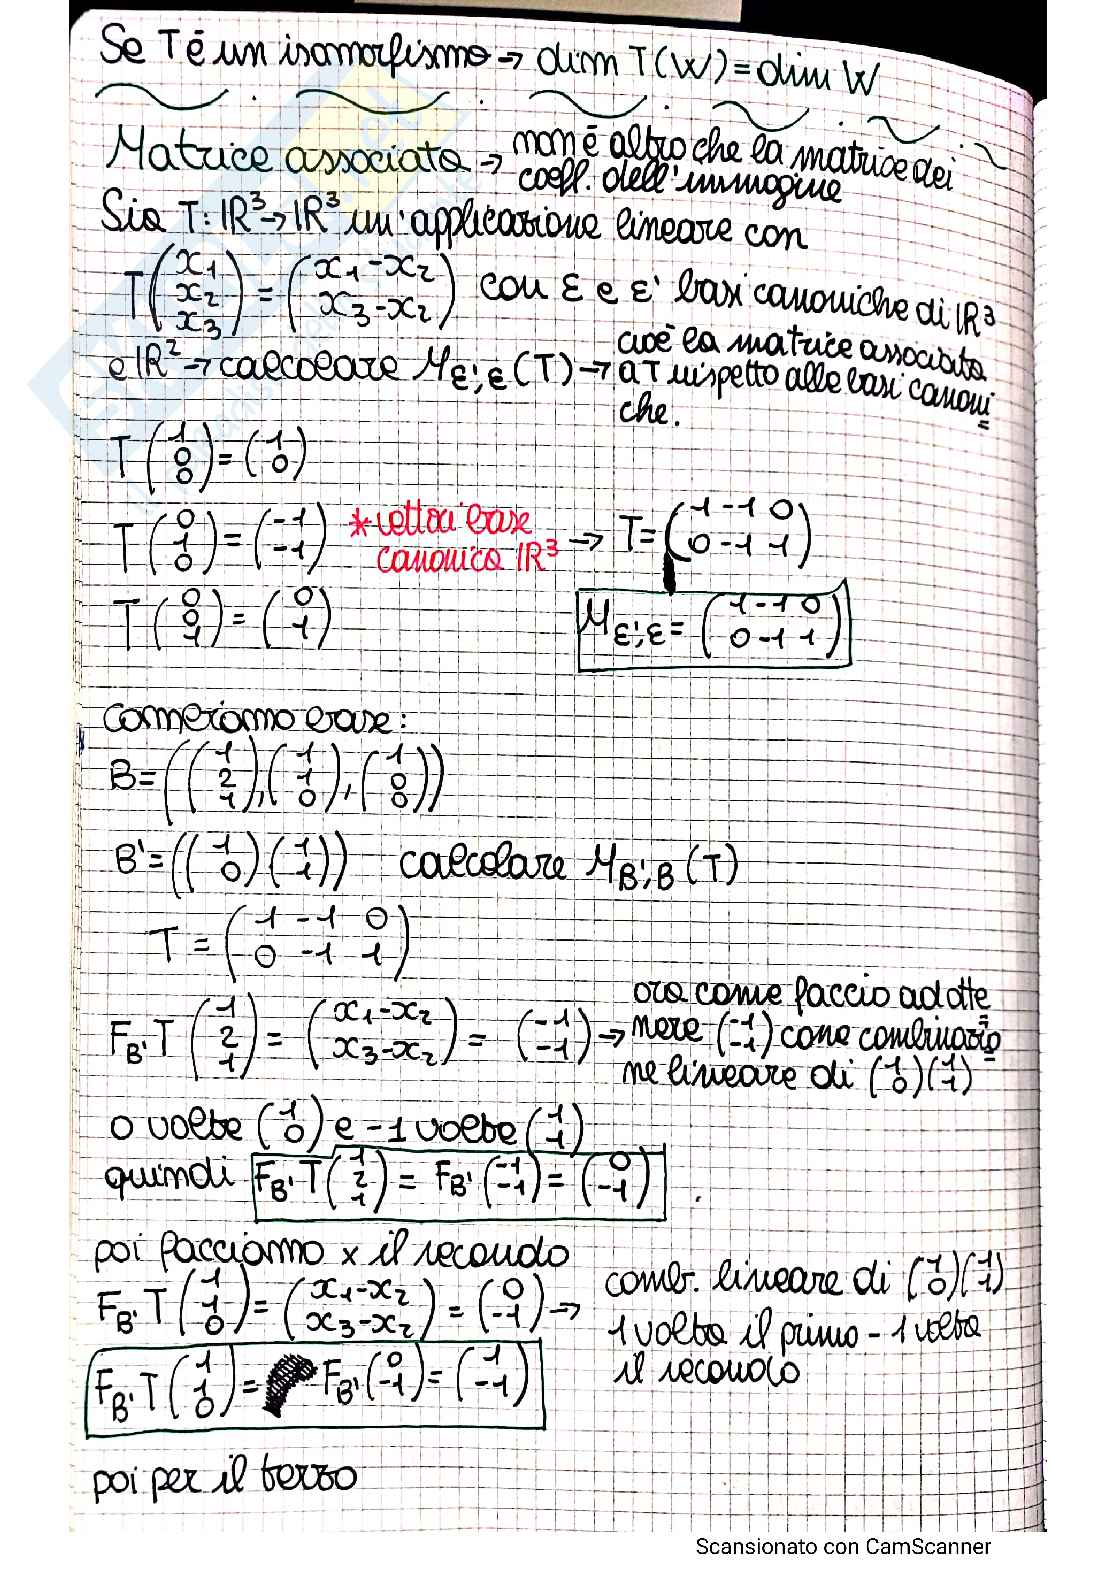 Se T è un isomorfismo → dim T(W) = dim W
Matrice associata → non è altro che la matrice dei
coeff. dell'immagine
Sia T: ℝ³ → ℝ³ un'applicazione lineare con
T(x₁ x₂ x₃) = (x₁-x₂ x₃-x₂) con ε e ε' basi canoniche di ℝ³
e ℝ² → calcolare M_ε',ε (T) → cioè la matrice associata
a T rispetto alle basi canoni
che.
T(1 0 0) = (1 0)
T(0 1 0) = (-1 -1) *vettori base
canonica ℝ³ → T = (1 -1 0 0 -1 1)
T(0 0 1) = (0 1)
M_ε',ε = (1 -1 0 0 -1 1)
cambiamo base:
B = ((1 2 1), (1 1 0), (1 0 0))
B' = ((1 0) (1 1)) calcolare M_B',B (T)
T = (1 -1 0 0 -1 1)
F_B' T(1 2 1) = (x₁-x₂ x₃-x₂) = (-1 -1) → ora come faccio ad otte
nere (-1 -1) come combinazio
ne lineare di (1 0) (1 1)
0 volte (1 0) e -1 volte (1 1)
quindi F_B' T(1 2 1) = F_B' (-1 -1) = (0 -1)
poi facciamo x il secondo
F_B' T(1 1 0) = (x₁-x₂ x₃-x₂) = (0 -1) → comb. lineare di (1 0) (1 1)
1 volta il primo - 1 volta
il secondo
F_B' T(1 1 0) = F_B' (0 -1) = (1 -1)
poi per il terzo
Scansionato con CamScanner